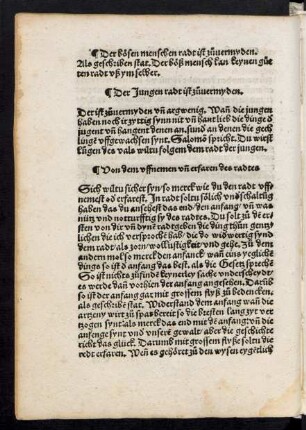 ¶ Der bösen menschen radt ist zůvermyden.
Als geschriben stat. Der böß mensch kan keynen gů
ten radt vß ym selber.
¶ Der Jungen radt ist zůvermyden.
Der ist zůvermyden vñ argwenig. Wañ die jungen
haben noch it zytig synn nit vñ hant lieb die dinge ď
jugent vñ hangent denen an. sund an denen die gech
linge vffgewachsen synt. Salomõ spricht. Du wirst
klůgen des vals wiltu folgem dem radt der jungen.
¶ Von dem vffnemen vñ erfaren des radtes
Sich wiltu sicher syn so merck wie du den radt vff
nemest oď erfarest. Jn radt soltu sölich vnd schaltig
haben das du ansehest das end den anfang vñ was
nütz vnd notturfftig sy des radtes. Du solt zů dē er
sten von dir vñ dynē radtgeben die ding thůn gentz
lichen die ich versprochē hab/ die do widerwertig synd
dem radt/ als zorn wollustigkeit vnd gehe. Zů dem
andern mol so merck den anfanck wañ eins yegliche
dings so ist ď anfang das best. als die Gesetz sprichē
So ist nichts zůfindē keynerley sache vnderscheydt
es werde dañ vorhien der anfang angesehen. Darūb
so ist der anfang gar mit grossem flyß zů bedencken.
als geschribē stat. Widerstand dem anfang wañ die
artzeny wirt zů spat bereit so die bresten lang zyt ver
tzogen synt/ als merck das end mit dē anfang: vñ die
anfenge synt vnd vnserē gewalt/ aber die geschichte
richt das glück. Darumb mit grossem flyße solten die
redt erfaren. Wen es gehört zů den wysen eygetlich